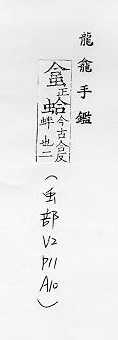 龍龕手鑑
正
蛤今古合反
蚌也二
(虫部 V2 P11 A10)